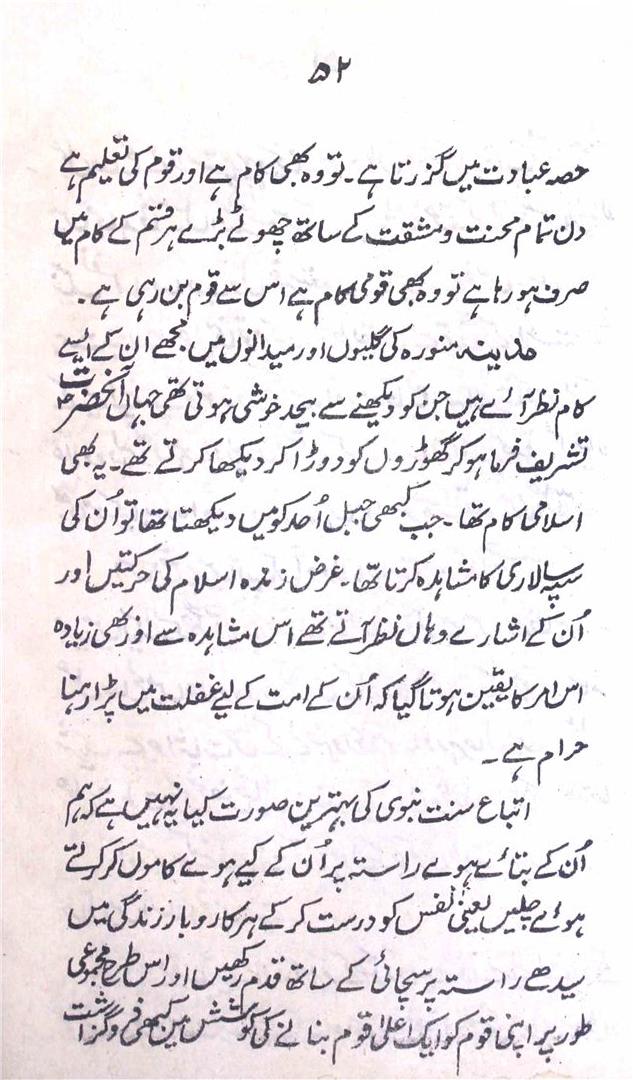 ۵۲
حصہ عبادت میں گزرتا ہے ۔ تو وہ بھی کام ہے اور قوم کی تعلیم ہے
دن تمام محنت و مشقت کے ساتھ چھوٹے بڑے ہر قسم کے کام میں
صرف ہو رہا ہے تو وہ بھی قومی کام ہے اس سے قوم بن رہی ہے ۔
مدینہ منورہ کی گلیوں اور میدانوں میں مجھے ان کے ایسے
کام نظر آئے ہیں جن کو دیکھنے سے بیحد خوشی ہوتی تھی جہاں آنحضرتؐ
تشریف فرما ہو کر گھوڑوں کو دوڑا کر دیکھا کرتے تھے ۔ یہ بھی
اسلامی کام تھا ۔ جب کبھی جبل اُحد کو میں دیکھتا تھا تو اُن کی
سپہ سالاری کا مشاہدہ کرتا تھا ۔ غرض زندہ اسلام کی حرکتیں اور
اُن کے اشارے وہاں نظر آتے تھے اس مشاہدہ سے اور بھی زیادہ
اس امر کا یقین ہوتا گیا کہ اُن کے امت کے لیے غفلت میں پڑا رہنا
حرام ہے ۔
اتباع سنت نبوی کی بہترین صورت کیا یہ نہیں ہے کہ ہم
اُن کے بتائے ہوے راستہ پر اُن کے کیے ہوے کاموں کو کرتے
ہوئے چلیں یعنی نفس کو درست کر کے ہر کاروبار زندگی میں
سیدھے راستہ پر سچائی کے ساتھ قدم رکھیں اور اس طرح مجموعی
طور پر اپنی قوم کو ایک اعلیٰ قوم بنانے کی کوشش میں کبھی فروگزاشت